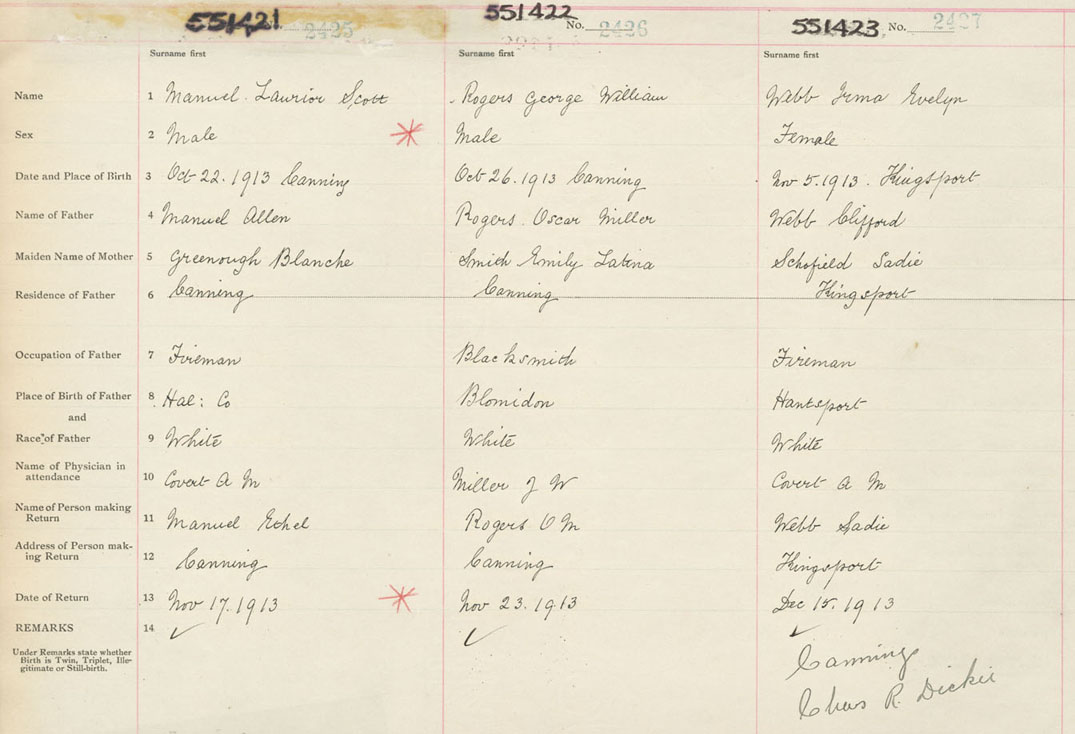 551421 2425 551422 No. 2426 551423 No. 2427
Surname first Surname first Surname first
Name 1 Manuel. Laurior Scott Rogers George William Webb Irma Evelyn
Sex 2 Male Male Female
Date and Place of Birth 3 Oct 22. 1913 Canning Oct 26. 1913 Canning Nov 5. 1913. Kingsport
Name of Father 4 Manuel Allen Rogers. Oscar Miller Webb Clifford
Maiden Name of Mother 5 Greenough Blanche Smith Emily Latina Schofield Sadie
Residence of Father 6 Canning Canning Kingsport
Occupation of Father 7 Fireman Blacksmith Fireman
Place of Birth of Father 8 Hal: Co Blomidon Hantsport
and
Race of Father 9 White White White
Name of Physician in
attendance 10 Covert A M Miller J W Covert A M
Name of Person making
Return 11 Manuel Ethel Rogers O M Webb Sadie
Address of Person mak-
ing Return 12 Canning Canning Kingsport
Date of Return 13 Nov 17. 1913 Nov 23. 1913 Dec 15. 1913
REMARKS 14
Under Remarks state whether
Birth is Twin, Triplet, Ille-
gitimate or Still-birth.
Canning
Chas R. Dickie